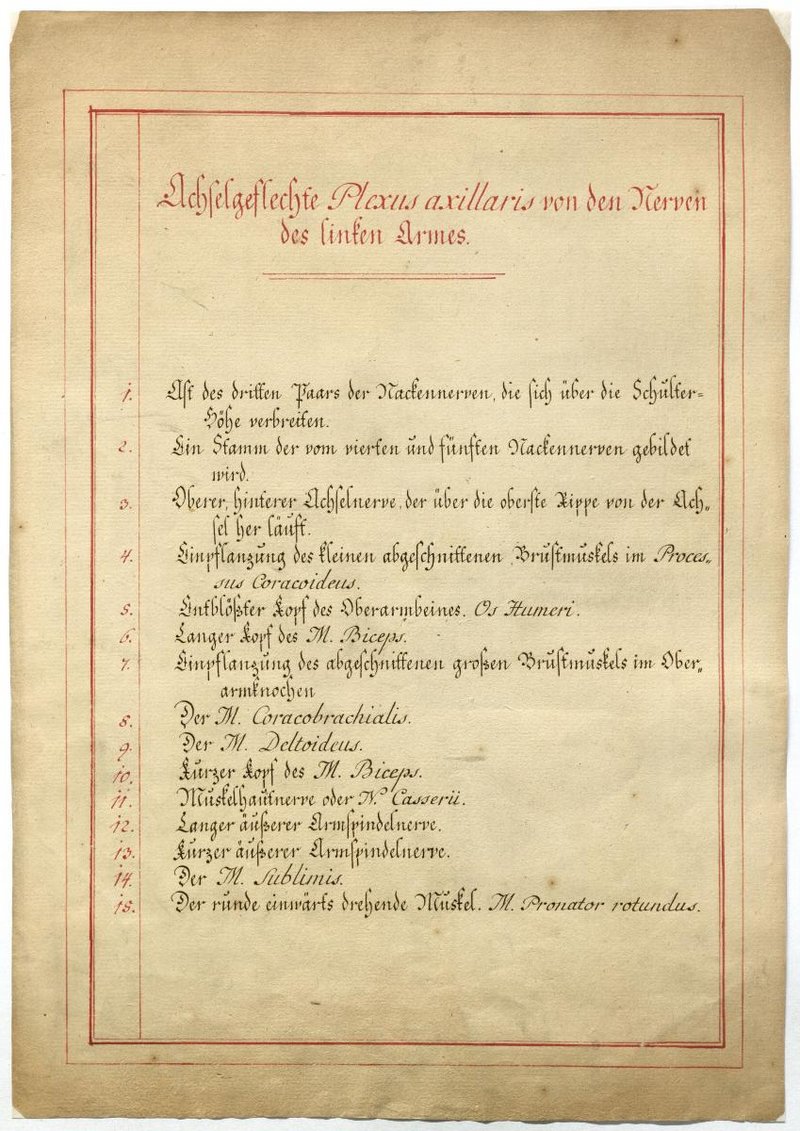 Achselgeflechte Plexus axillaris von den Nerven
des linken Armes.
1. Ast des dritten Paars der Nackennerven, die sich über die Schulter=
Höhe verbreiten.
2. Ein Stamm der vom vierten und fünften Nackennerven gebildet
wird.
3. Oberer, hinterer Achselnerve, der über die oberste Rippe von der Ach„
sel her läuft.
4. Einpflanzung des kleinen abgeschnittenen Brustmuskels im Proces„
sus Coracoideus.
5. Entblößter Kopf des Oberarmbeines. Os Humeri.
6. Langer Kopf des M. Biceps.
7. Einpflanzung des abgeschnittenen großen Brustmuskels im Ober„
armknochen
8. Der M. Coracobrachialis.
9. Der M. Deltoideus.
10. Kurzer Kopf des M. Biceps.
11. Muskelhautnerve oder N. Casserii.
12. Langer äußerer Armspindelnerve.
13. Kurzer äußerer Armspindelnerve.
14. Der M. Sublimis.
15. Der runde einwärts drehende Muskel. M. Pronator rotundus.